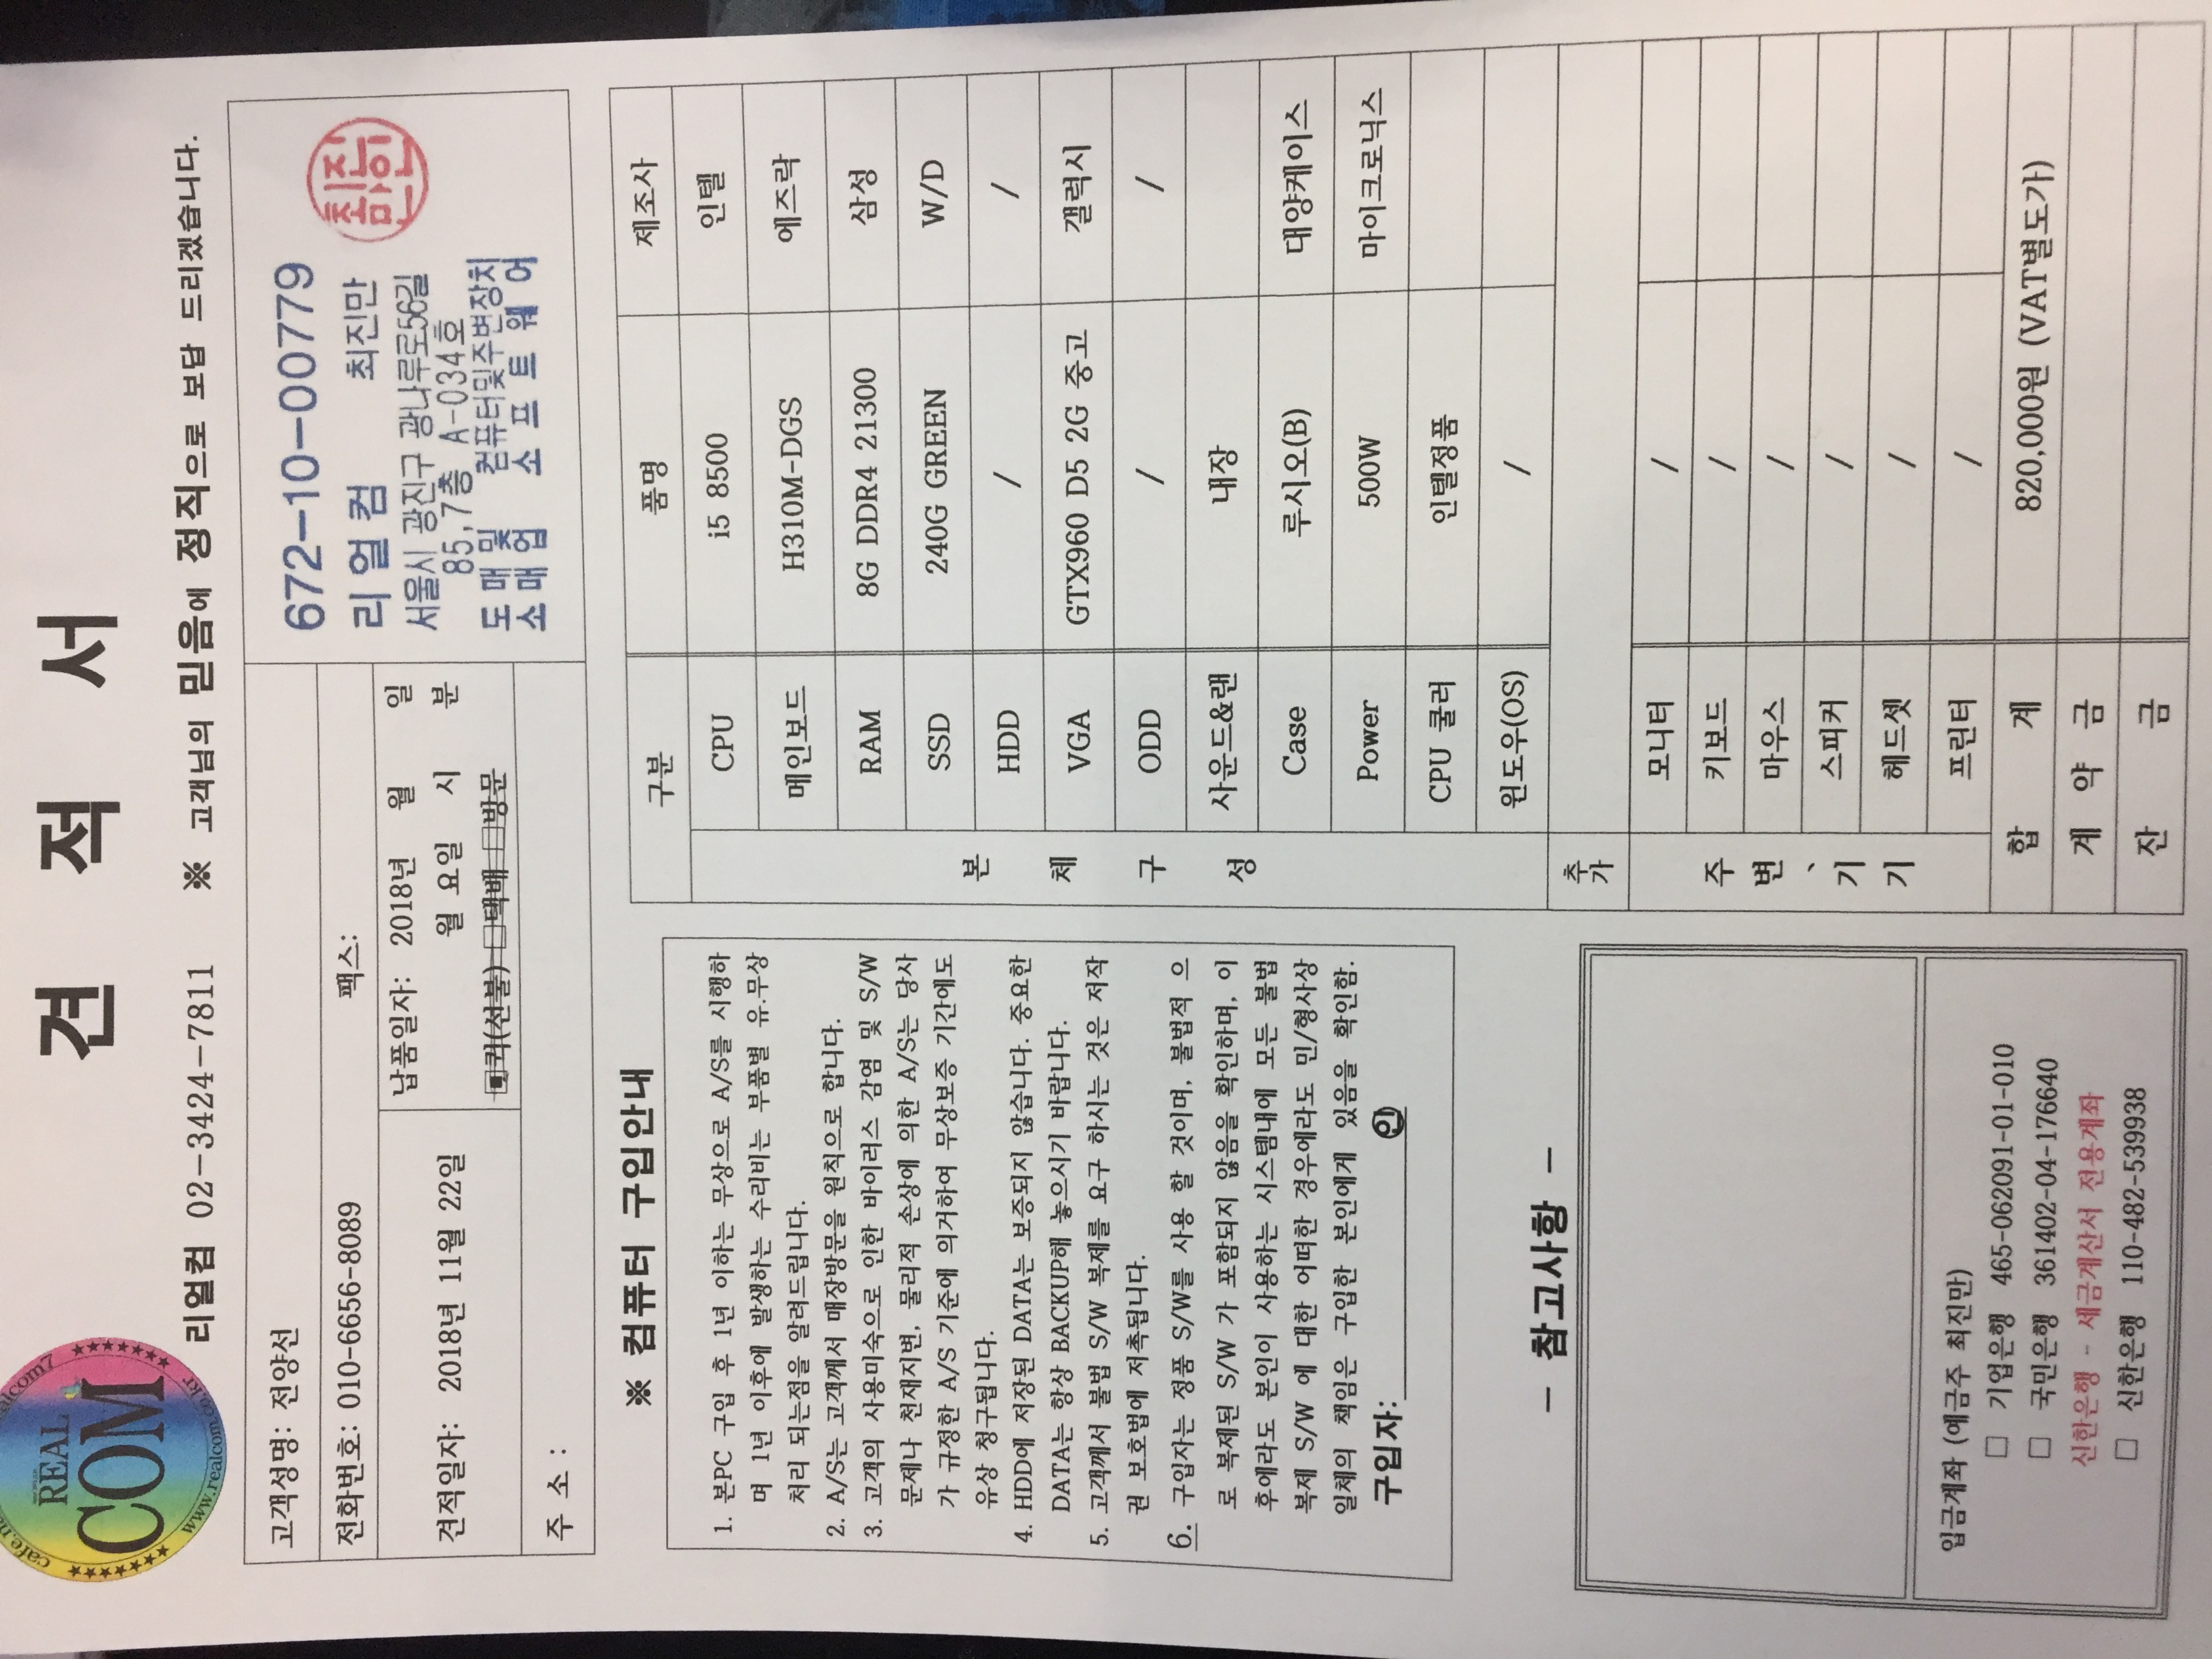 견 적 서
REAL
COM
www.realcom.co.kr
리얼컴 02-3424-7811 ※ 고객님의 믿음에 정직으로 보답 드리겠습니다.
고객성명: 전양선
전화번호: 010-6656-8089 팩스:
견적일자: 2018년 11월 22일
납품일자: 2018년 월 일
월 요일 시 분
▣퀵(선불) □택배 □방문
주 소 :
672-10-00779
리얼컴 최진만
서울시 광진구 광나루로56길
85,7층 A-034호
도매및 컴퓨터및주변장치
소매업 소프트웨어
※ 컴퓨터 구입안내
1. 본PC 구입 후 1년 이하는 무상으로 A/S를 시행하
며 1년 이후에 발생하는 수리비는 부품별 유.무상
처리 되는점을 알려드립니다.
2. A/S는 고객께서 매장방문을 원칙으로 합니다.
3. 고객의 사용미숙으로 인한 바이러스 감염 및 S/W
문제나 천재지변, 물리적 손상에 의한 A/S는 당사
가 규정한 A/S 기준에 의거하여 무상보증 기간에도
유상 청구됩니다.
4. HDD에 저장된 DATA는 보증되지 않습니다. 중요한
DATA는 항상 BACKUP해 놓으시기 바랍니다.
5. 고객께서 불법 S/W 복제를 요구 하시는 것은 저작
권 보호법에 저촉됩니다.
6. 구입자는 정품 S/W를 사용 할 것이며, 불법적 으
로 복제된 S/W 가 포함되지 않음을 확인하며, 이
후에라도 본인이 사용하는 시스템내에 모든 불법
복제 S/W 에 대한 어떠한 경우에라도 민/형사상
일체의 책임은 구입한 본인에게 있음을 확인함.
구입자: ㊞
- 참고사항 -
입금계좌 (예금주 최진만)
□ 기업은행 465-062091-01-010
□ 국민은행 361402-04-176640
신한은행 - 세금계산서 전용계좌
□ 신한은행 110-482-539938
구분 품명 제조사
본 체 구 성
CPU i5 8500 인텔
메인보드 H310M-DGS 에즈락
RAM 8G DDR4 21300 삼성
SSD 240G GREEN W/D
HDD / /
VGA GTX960 D5 2G 중고 갤럭시
ODD / /
사운드&랜 내장
Case 루시오(B) 대양케이스
Power 500W 마이크로닉스
CPU 쿨러 인텔정품
윈도우(OS) /
추가
주 변 、 기 기
모니터 /
키보드 /
마우스 /
스피커 /
헤드셋 /
프린터 /
합 계 820,000원 (VAT별도가)
계 약 금
잔 금